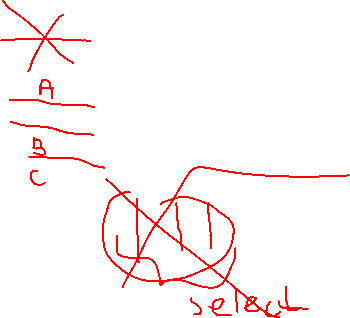 A
B
C
select